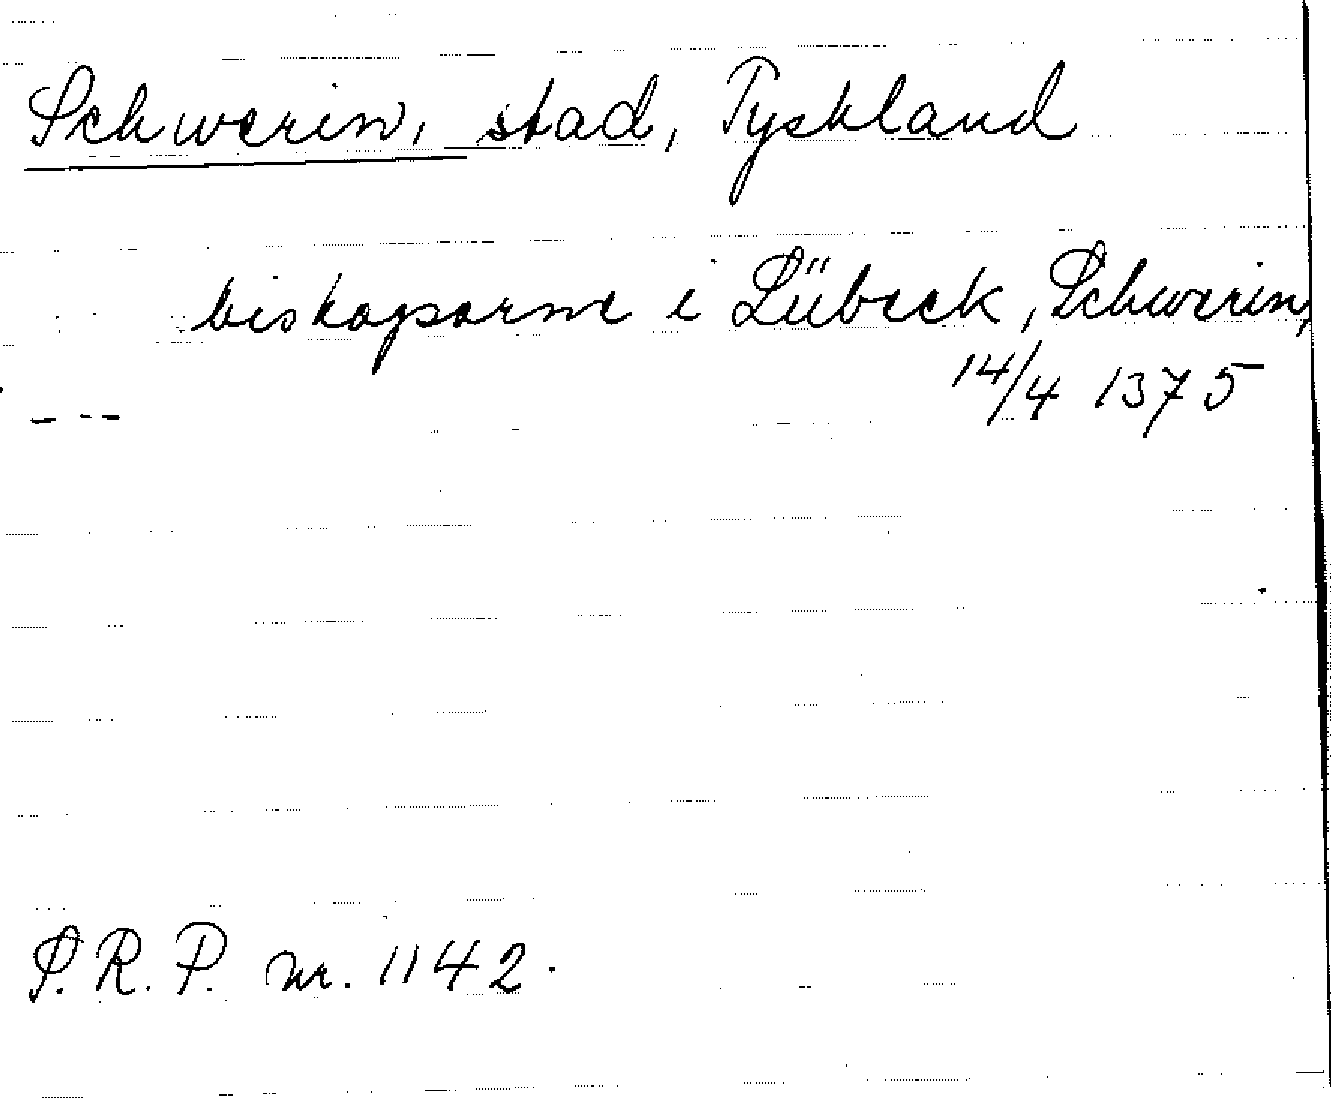 Schwerin, stad, Tyskland
biskoparne i Lübeck, Schwerin,
14/4 1375
- - -
S.R.P. nr. 1142.